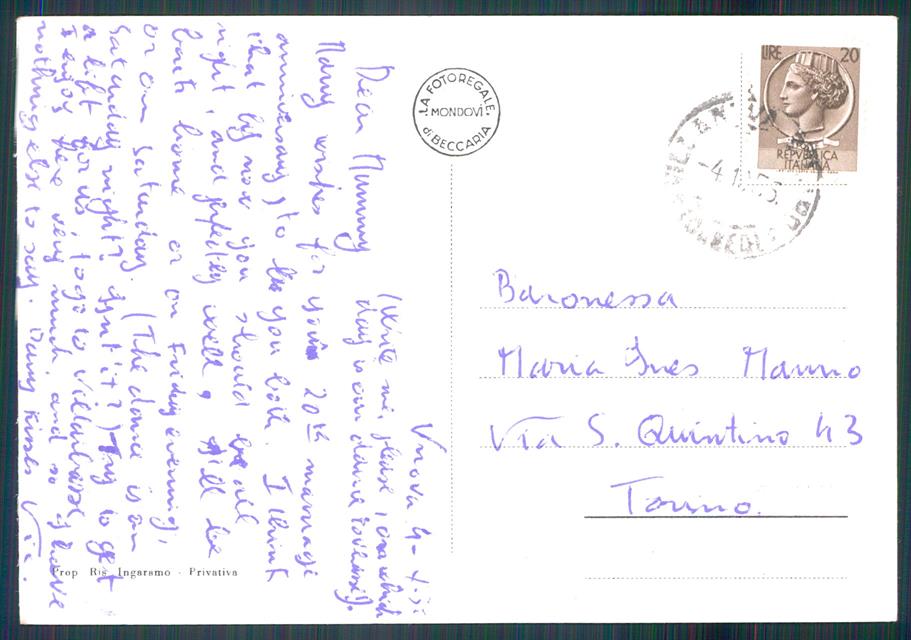 V.nova 4-
Dear Mummy (Write me, please, on which
day is our dance Torinese).
Many wishes for your 20th marriage
anniversary, to you both. I think
that by now you should be all
right, and perfectly well,
back home or on Friday evening,
or on Saturday. (The dance is on
Saturday night? isn't it?) Try to get
a lift for us to go to Villarbasse,
I enjoy here very much, and so I have
nothing else to say. Many kisses
LA FOTOREGALE
MONDOVI
di BECCARIA
Prop Ris Ingaramo - Privativa
LIRE 20
REPVBBLICA
ITALIANA
Baronessa
Maria Ines Manno
Via S. Quintino 43
Torino.